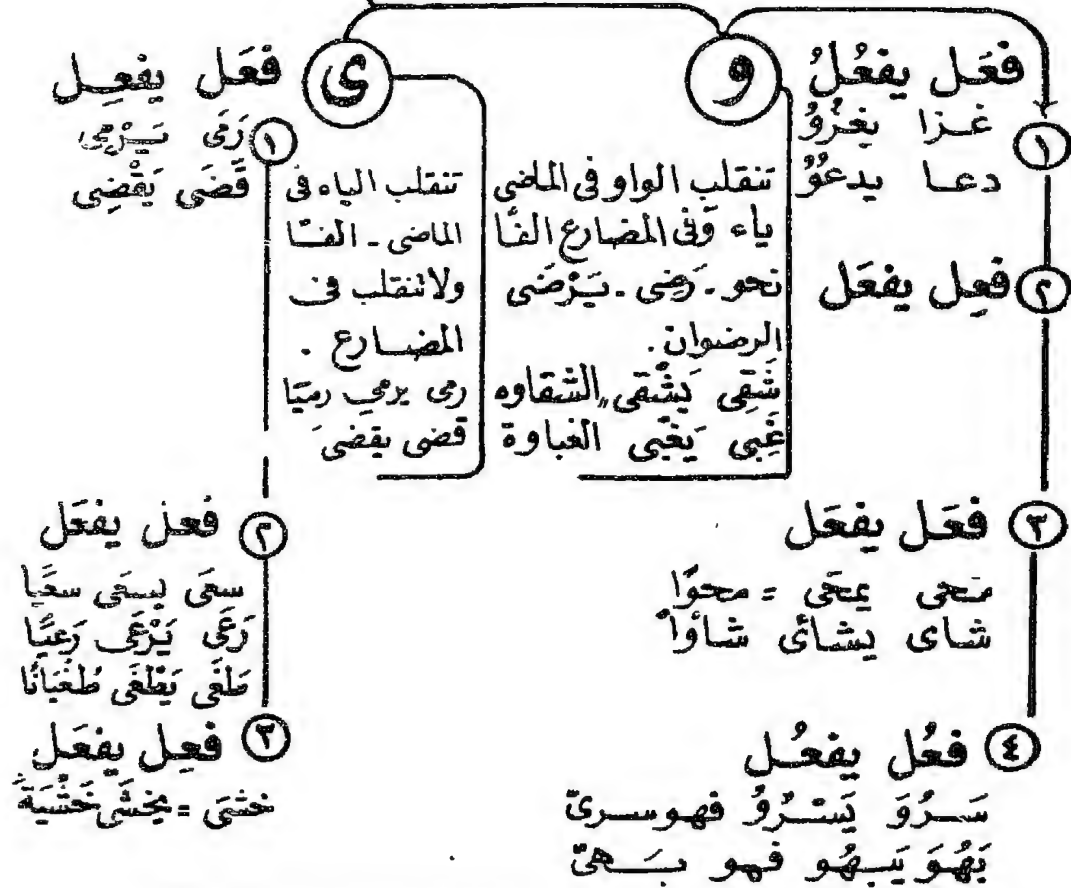 و
فَعَل يفعُلُ
١
غزا يغزُوُ
دعا يدعوُ
تنقلب الواو فى الماضى
ياء وفى المضارع الفًا
نحو ـ رَضِى ـ يَرْضَى
الرضوان .
شَقِى يَشْقى الشقاوه
غَبِى يَغْبى الغباوة
٢ فعِل يفعَل
٣ فعَل يفعَل
محى يمحَى = محوًا
شاى يشائى شاؤا
٤ فعُل يفعُل
سَرُوَ يَسْرُوُ فهو سرىّ
بَهُوَ يَبهُو فهو بَهىّ
ى
فعَل يفعِل
١ رَمَى يَرْمِى
قَضَى يَقْضِى
تنقلب الياء فى
الماضى ـ الفًا
ولا تنقلب فى
المضارع .
رمى يرمى رميًا
قضى يقضى
٢ فعَل يفعَل
سعَى يسعَى سعيًا
رَعَى يَرْعَى رَعيًا
طَغَى يَطْغَى طُغْيَانًا
٣ فعِل يفعَل
خشىَ = يخشَى خَشْيَةً